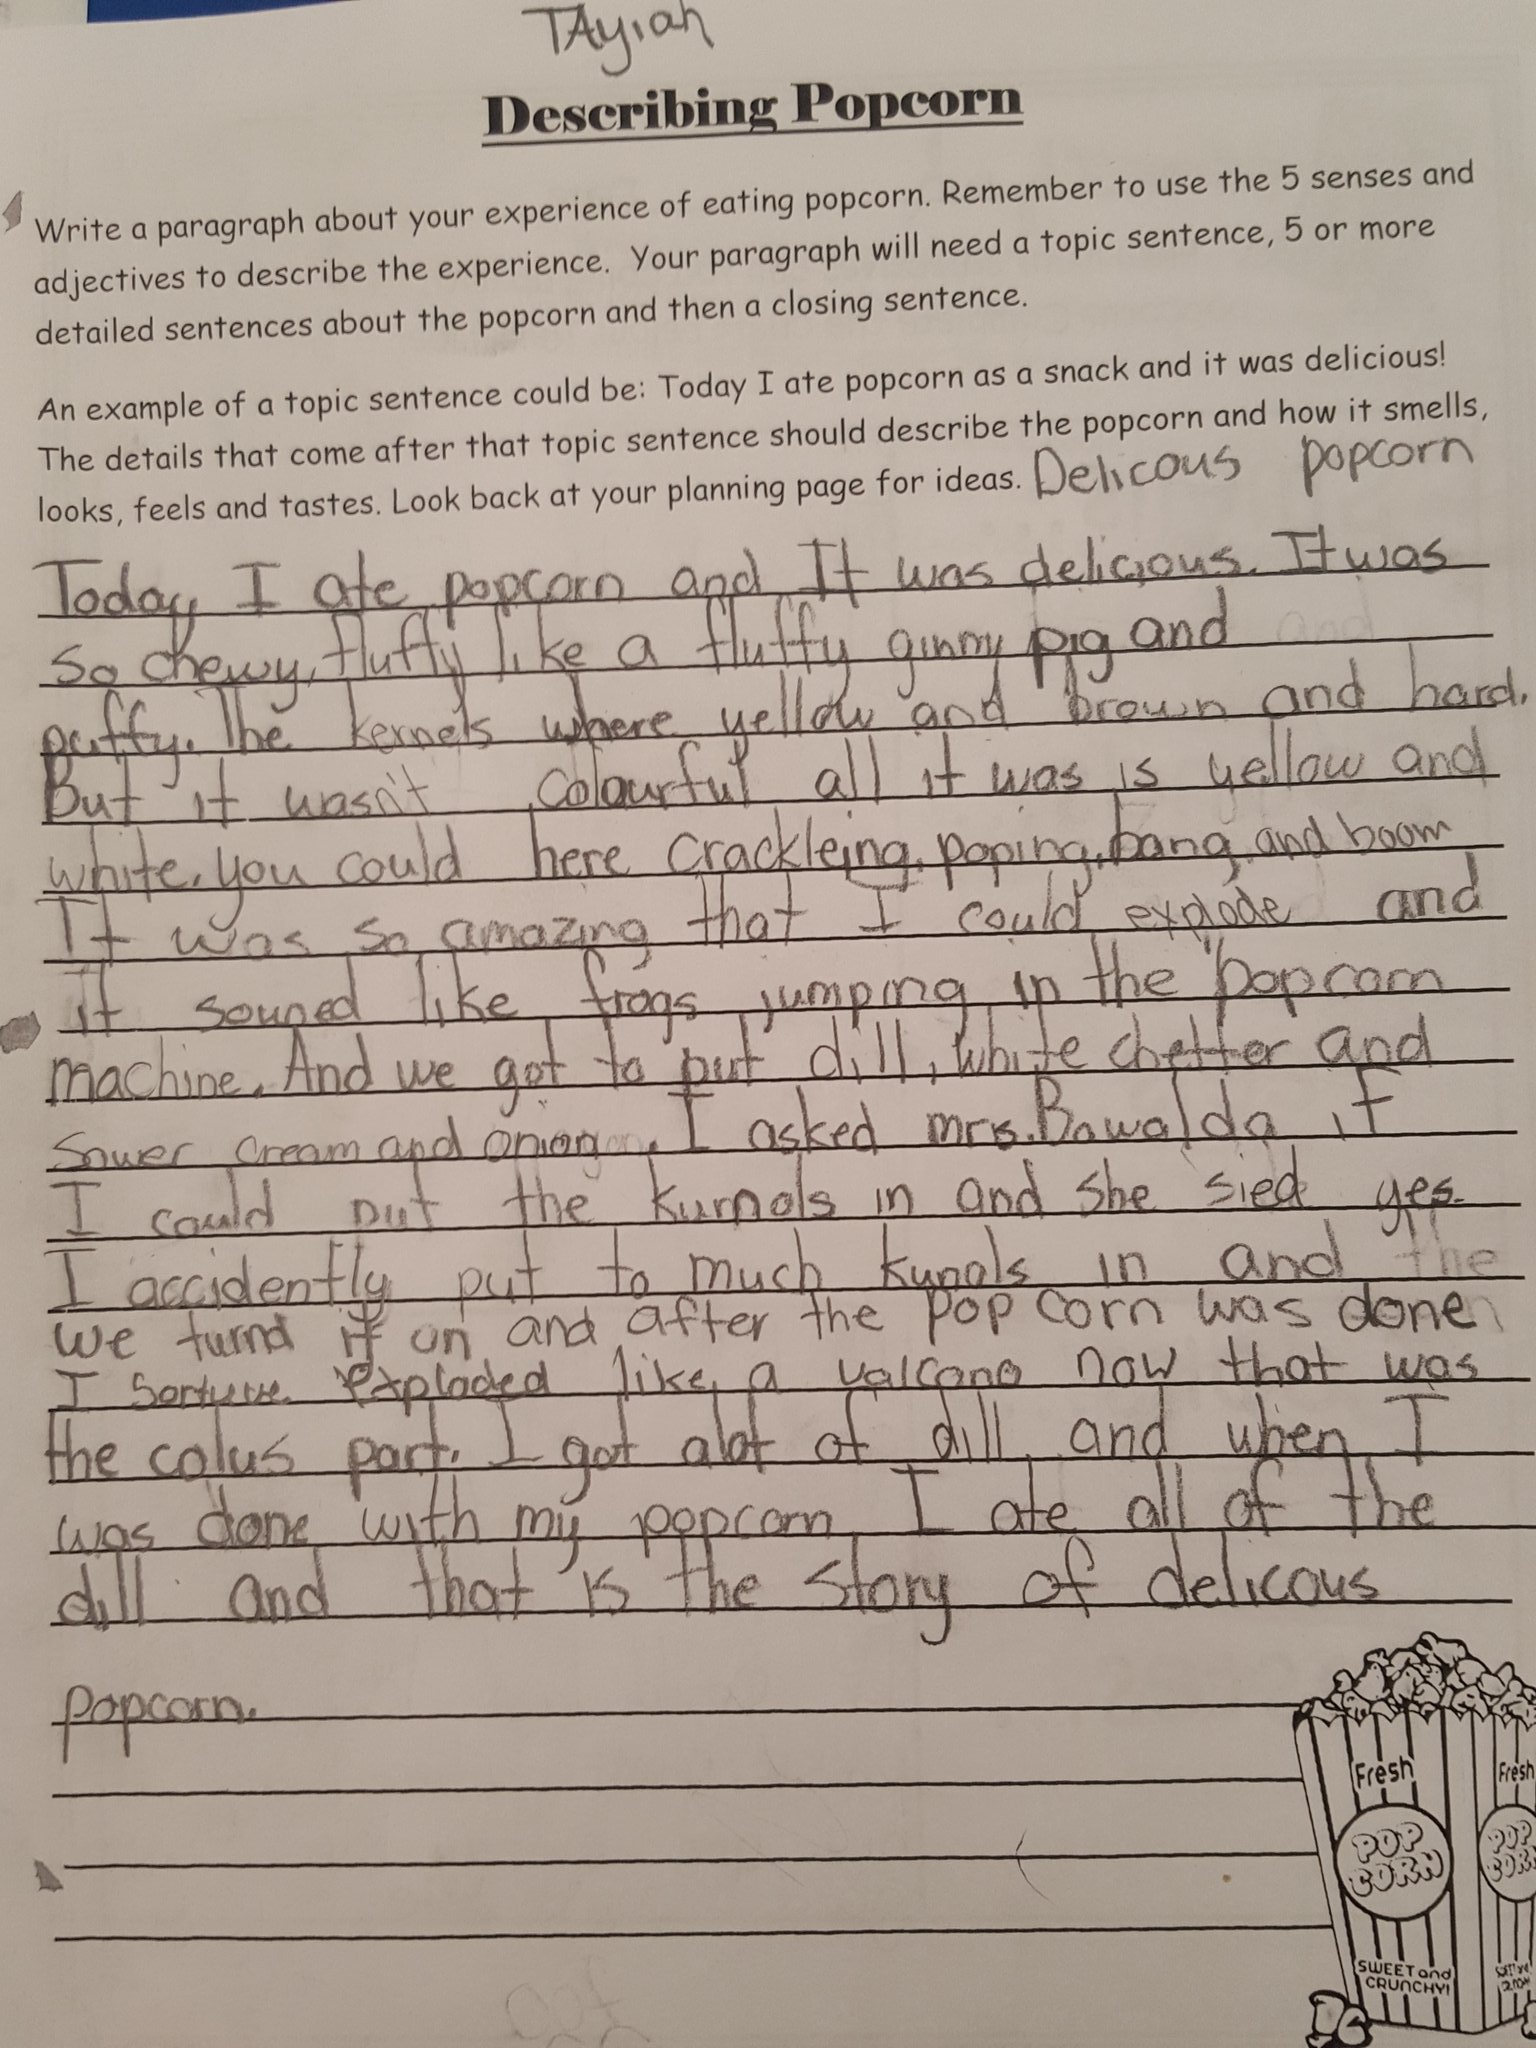 TAyiah
Describing Popcorn
Write a paragraph about your experience of eating popcorn. Remember to use the 5 senses and
adjectives to describe the experience. Your paragraph will need a topic sentence, 5 or more
detailed sentences about the popcorn and then a closing sentence.
An example of a topic sentence could be: Today I ate popcorn as a snack and it was delicious!
The details that come after that topic sentence should describe the popcorn and how it smells,
looks, feels and tastes. Look back at your planning page for ideas. Delicous popcorn
Today I ate popcorn and It was delicious. It was
so chewy, fluffy like a fluffy ginny pig and
puffy. The kernels where yellow and brown and hard.
But it wasn't colourful all it was is yellow and
white. you could here crackleing, poping, bang, and boom
It was so amazing that I could explode and
it souned like frogs jumping in the popcorn
machine. And we got to put dill, white chetter and
sower cream and onion. I asked mrs. Bowalda if
I could put the kurnols in and she sied yes.
I accidently put to much kunols in and the
we turnd it on and after the pop corn was done
I exploded like a valcano now that was
the colus part. I got alot of dill and when I
was done with my popcorn I ate all of the
dill and that is the story of delicous
popcorn.
Fresh
POP
CORN
SWEET and
CRUNCHY!
Fresh
POP